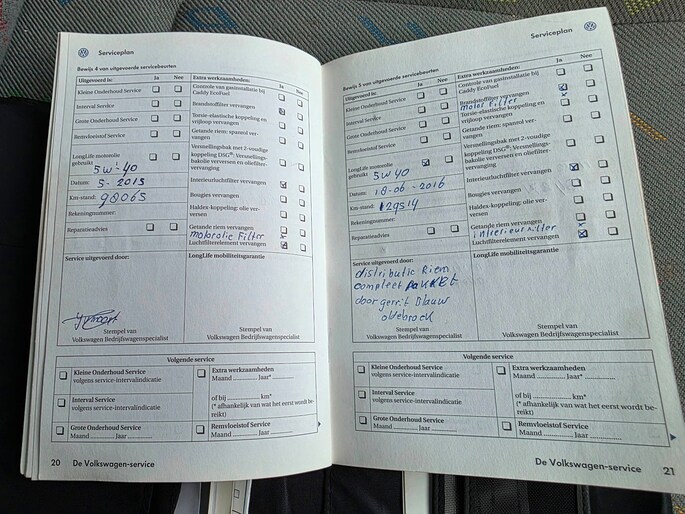 Serviceplan
Bewijs 4 van uitgevoerde servicebeurten
Uitgevoerd is: Ja Nee
Kleine Onderhoud Service
Interval Service
Grote Onderhoud Service
Remvloeistof Service
LongLife motorolie
gebruikt
5w-40
Datum: 5-2015
Km-stand: 98065
Rekeningnummer:
Reparatieadvies
Extra werkzaamheden: Ja Nee
Controle van gasinstallatie bij
Caddy EcoFuel
Brandstoffilter vervangen
Torsie-elastische koppeling en
vrijloop vervangen
Getande riem: spanrol ver-
vangen
Versnellingsbak met 2-voudige
koppeling DSG®: Versnellings-
bakolie verversen en oliefilter-
vervanging
Interieurluchtfilter vervangen
Bougies vervangen
Haldex-koppeling: olie ver-
versen
Getande riem vervangen
motorolie Filter
Luchtfilterelement vervangen
Service uitgevoerd door:
LongLife mobiliteitsgarantie
Stempel van
Volkswagen Bedrijfswagenspecialist
Stempel van
Volkswagen Bedrijfswagenspecialist
Volgende service
Kleine Onderhoud Service
volgens service-intervalindicatie
Interval Service
volgens service-intervalindicatie
Grote Onderhoud Service
Maand ........... Jaar ...........
Extra werkzaamheden
Maand ........... Jaar* ...........
of bij ........... km*
(* afhankelijk van wat het eerst wordt be-
reikt)
Remvloeistof Service
Maand ........... Jaar ...........
20 De Volkswagen-service
Serviceplan
Bewijs 5 van uitgevoerde servicebeurten
Uitgevoerd is: Ja Nee
Kleine Onderhoud Service
Interval Service
Grote Onderhoud Service
Remvloeistof Service
LongLife motorolie
gebruikt
5w40
Datum: 18-06-2016
Km-stand: 129514
Rekeningnummer:
Reparatieadvies
Extra werkzaamheden: Ja Nee
Controle van gasinstallatie bij
Caddy EcoFuel
Brandstoffilter vervangen
motor Filter
Torsie-elastische koppeling en
vrijloop vervangen
Getande riem: spanrol ver-
vangen
Versnellingsbak met 2-voudige
koppeling DSG®: Versnellings-
bakolie verversen en oliefilter-
vervanging
Interieurluchtfilter vervangen
Bougies vervangen
Haldex-koppeling: olie ver-
versen
Getande riem vervangen
interieur filter
Luchtfilterelement vervangen
Service uitgevoerd door:
distributie Riem
compleet PAKKET
door gerrit Blauw
oldebroek
LongLife mobiliteitsgarantie
Stempel van
Volkswagen Bedrijfswagenspecialist
Stempel van
Volkswagen Bedrijfswagenspecialist
Volgende service
Kleine Onderhoud Service
volgens service-intervalindicatie
Interval Service
volgens service-intervalindicatie
Grote Onderhoud Service
Maand ........... Jaar ...........
Extra werkzaamheden
Maand ........... Jaar* ...........
of bij ........... km*
(* afhankelijk van wat het eerst wordt be-
reikt)
Remvloeistof Service
Maand ........... Jaar ...........
De Volkswagen-service 21